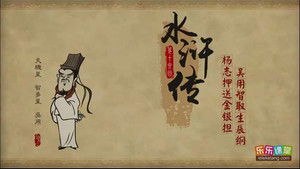 水浒传
第十六回
杨志押送金银担
吴用智取生辰纲
天機星 智多星 吳用
乐乐课堂
leleketang.com